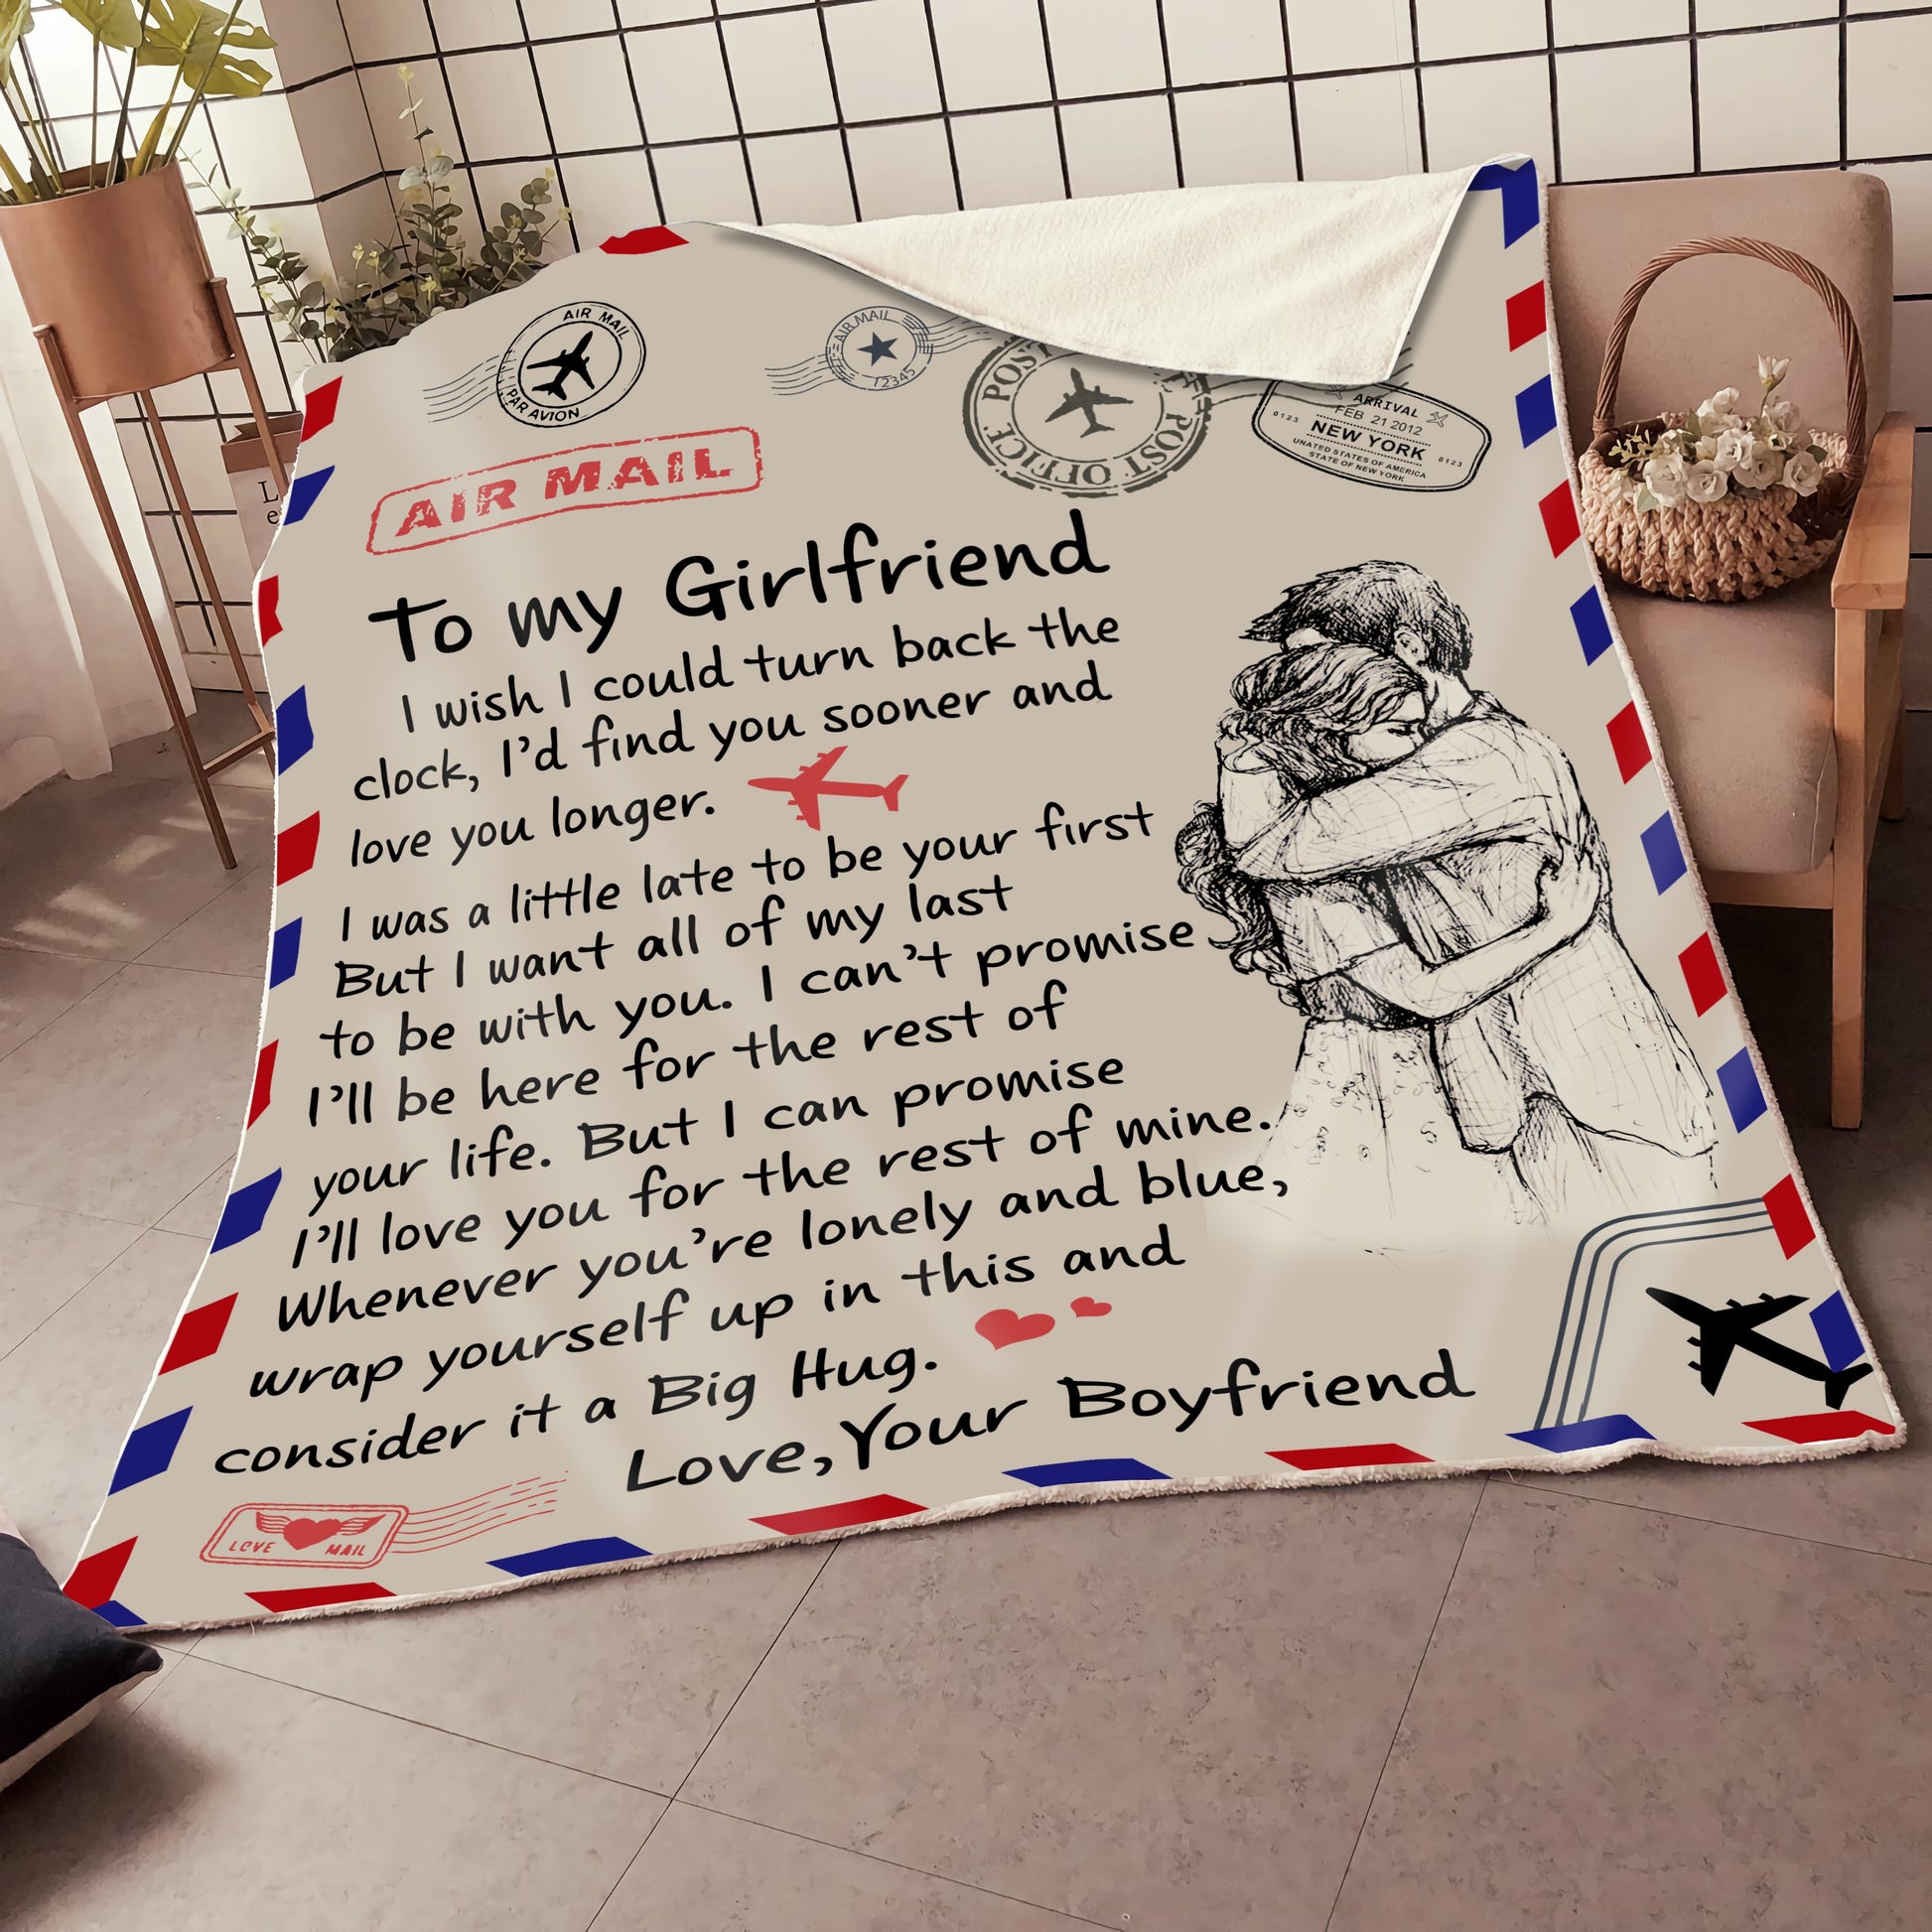 AIR MAIL
PAR AVION
AIR MAIL
12345
POST OFFICE
POST OFFICE
ARRIVAL
FEB 21 2012
0123
NEW YORK
0123
UNITED STATES OF AMERICA
STATE OF NEW YORK
AIR MAIL
To my Girlfriend
I wish I could turn back the
clock, I'd find you sooner and
love you longer.
I was a little late to be your first
But I want all of my last
to be with you. I can't promise
I'll be here for the rest of
your life. But I can promise
I'll love you for the rest of mine.
Whenever you're lonely and blue,
wrap yourself up in this and
consider it a Big Hug.
Love, Your Boyfriend
LOVE MAIL